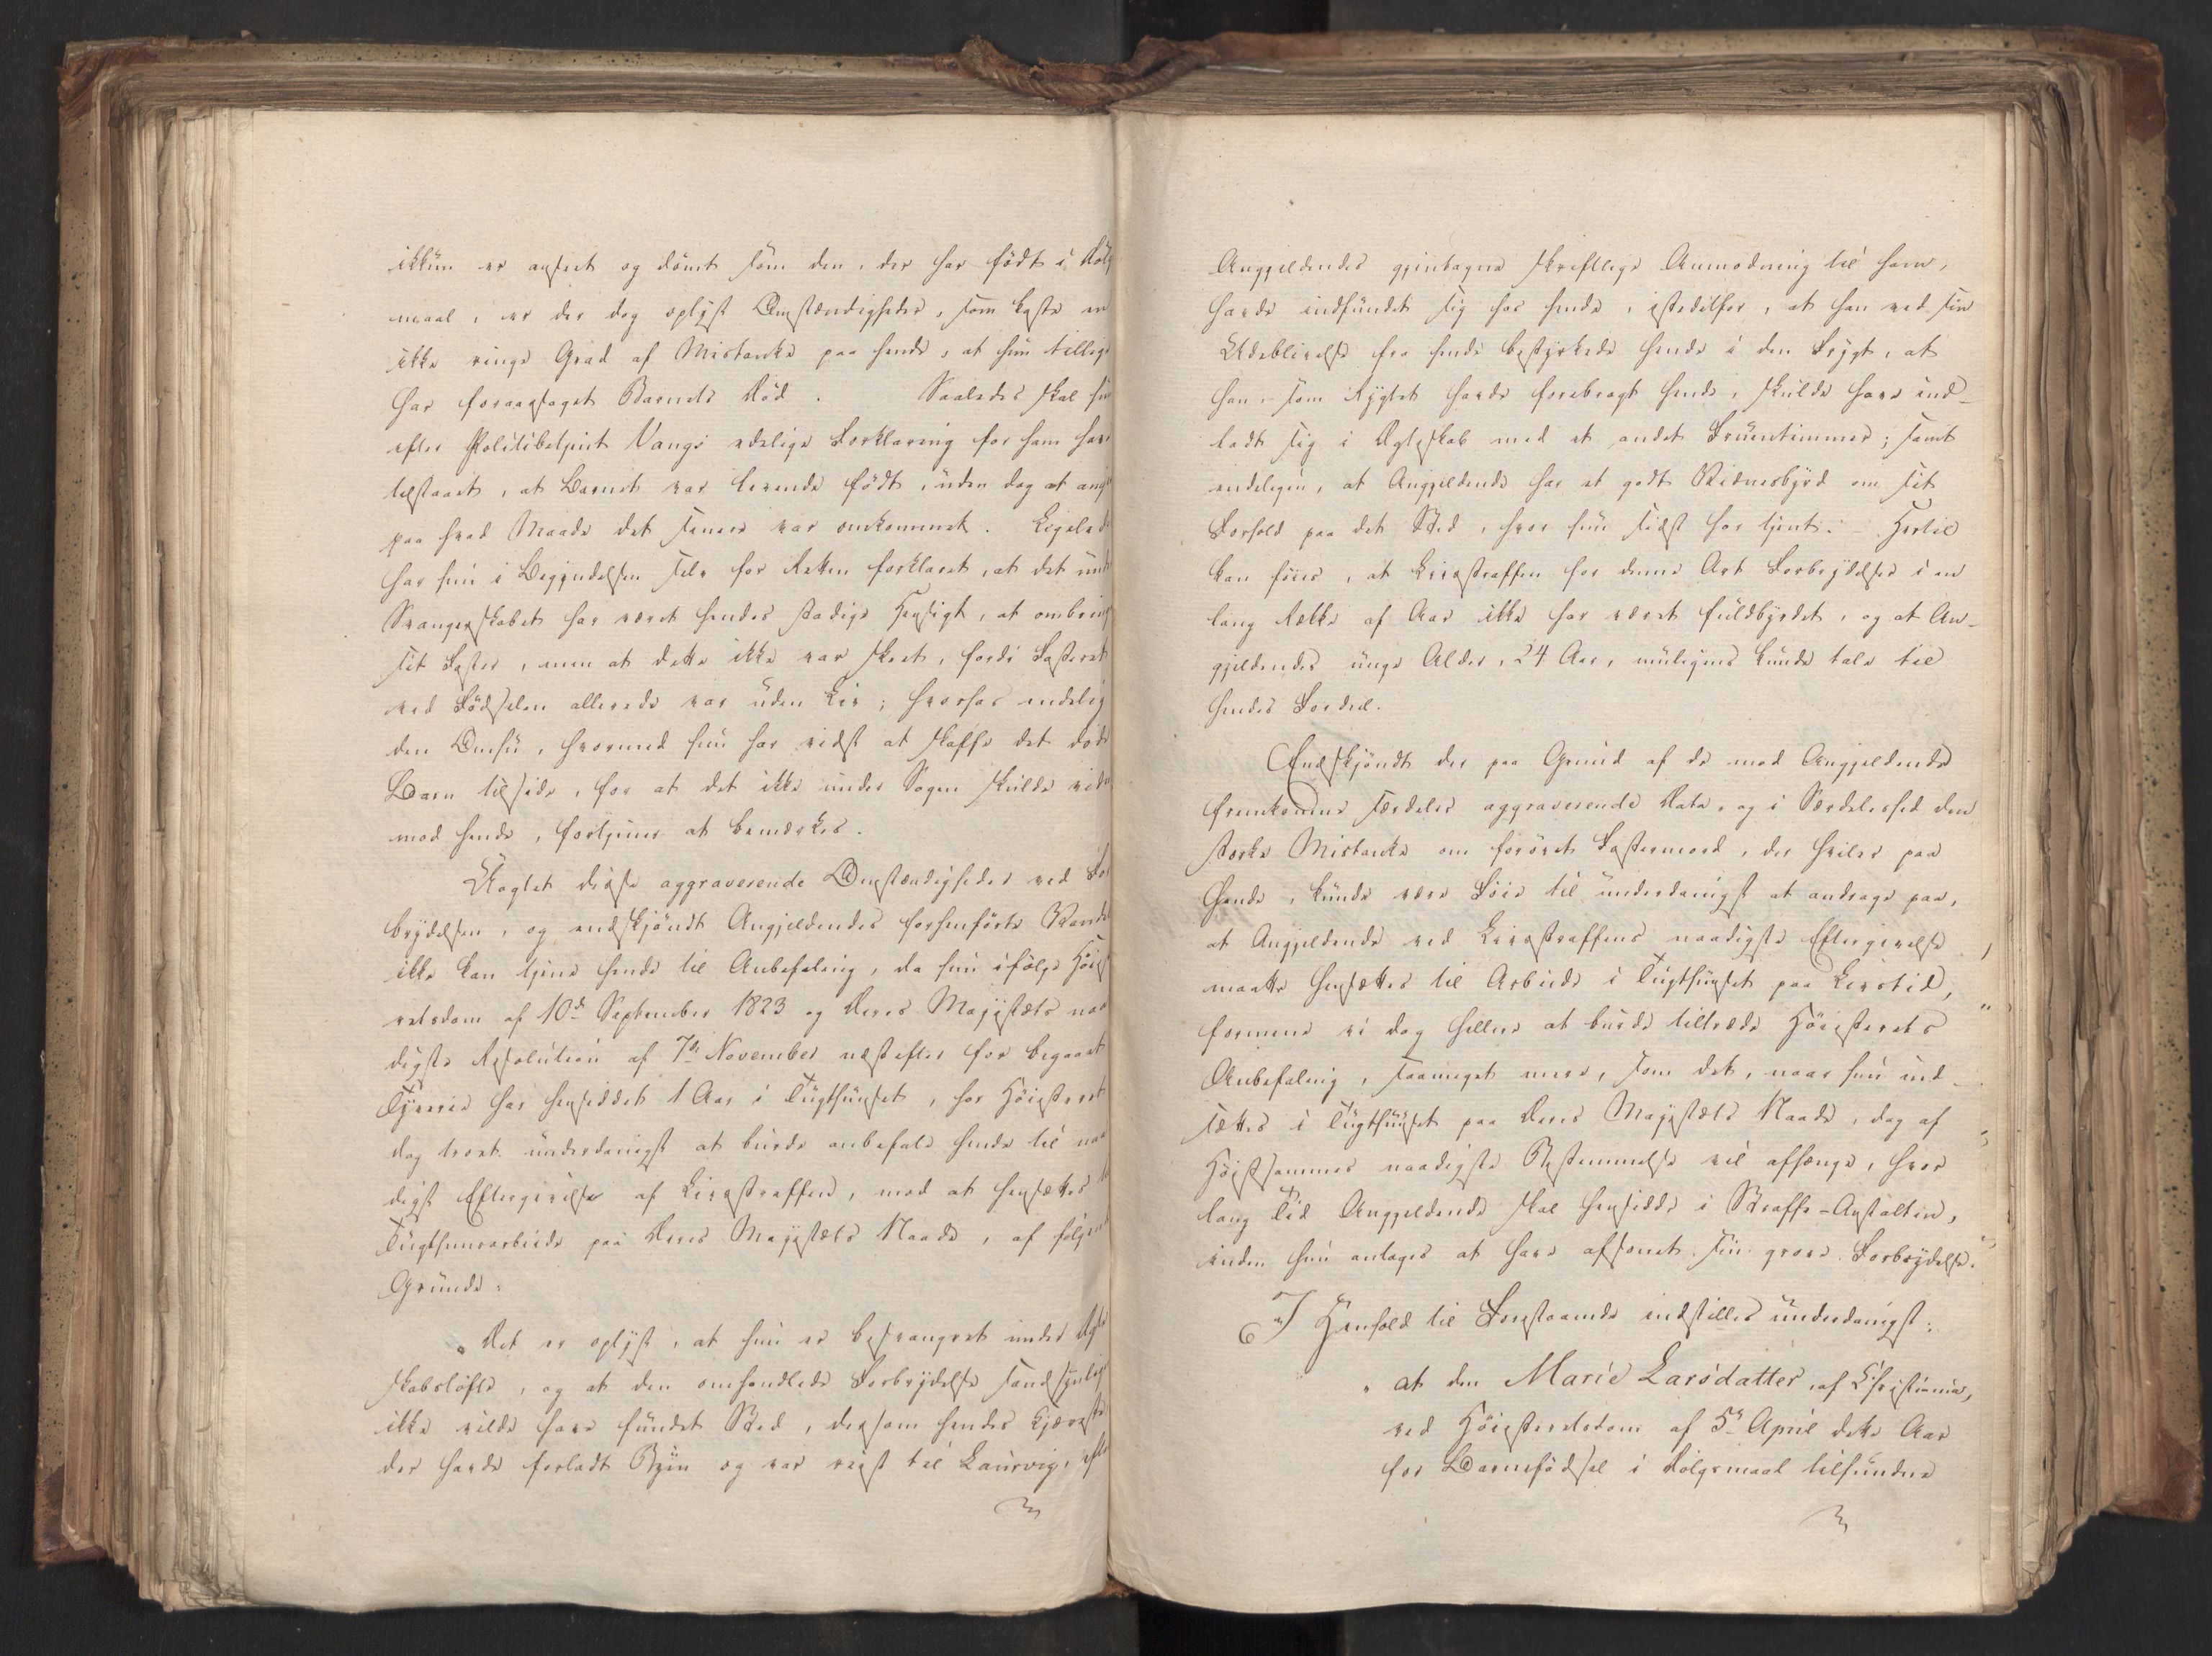 ikkun er anseet og dömt som den, der har födt i Döls
maal, er der dog oplyst Omstændigheder, som kaste en
ikke ringe Grad af Mistanke paa hende, at hun tillige
har foraarsaget Barnets Död. Saaledes skal hun
efter Politibetjent Vangs edelige Forklaring for ham have
tilstaaet, at Barnet var levende födt, uden dog at angi
paa hvad Maade det senere var omkommet. Ligeled
har hun i Begyndelsen selv for Retten forklaret, at det und
Svangerskabet har været hendes stadige Hensigt, at ombring
sit Foster, men at dette ikke var skeet, fordi Fosteret
ved Födselen allerede var uden Liv; hvorhos endelig
den Omhu, hvormed hun har vidst at skaffe det döde
Barn tilside, for at det ikke under Sagen skulde vidn
mod hende, fortjener at bemærkes.
Uagtet disse aggraverende Omstændigheder ved For
brydelsen, og endskjöndt Angjeldendes forhenförte Vandel
ikke kan tjene hende til Anbefaling, da hun ifölge Höies
retsdom af 10de September 1823 og Deres Majestæts naa
digste Resolution af 7de November næstefter for begaaet
Tyverie har hensiddet 1 Aar i Tugthuuset, har Höiesteret
dog troet underdanigst at burde anbefale hende til naa
digst Eftergivelse af Livsstraffen, mod at hensættes til
Tugthuusarbeide paa Deres Majestæts Naade, af fölgende
Grunde:
„Det er oplyst, at hun er besvangret under Ægte
skabslöfte, og at den omhandlede Forbrydelse sandsynlig
ikke vilde have fundet Sted, dersom hendes Kjæreste
der havde forladt Byen og var reist til Laurvig, efter
Angjeldendes gjentagne skriftlige Anmodning til ham,
havde indfundet sig hos hende, istedetfor, at han ved sin
Udeblivelse fra hende bestyrkede hende i den Frygt, at
han, som Rygtet havde forebragt hende, skulde have ind-
ladt sig i Ægteskab med et andet Fruentimmer; samt
endeligen, at Angjeldende har et godt Vidnesbyrd om sit
Forhold paa det Sted, hvor hun sidst har tjent. – Hertil
kan föies, at Livsstraffen for denne Art Forbrydelser i en
lang Række af Aar ikke har været fuldbyrdet, og at An-
gjeldendes unge Alder, 24 Aar, muligens kunde tale til
hendes Fordeel.
Endskjöndt der paa Grund af de mod Angjeldende
fremkomne særdeles aggraverende Data, og i Særdeleshed den
stærke Mistanke om forövet Fostermord, der hviler paa
hende, kunde være Föie til underdanigst at andrage paa,
at Angjeldende ved Livsstraffens naadigste Eftergivelse
maatte hensættes til Arbeide i Tugthuuset paa Livstid,
formene vi dog hellere at burde tiltræde Höiesterets
Anbefaling, saameget mere, som det, naar hun ind-
sættes i Tugthuuset paa Deres Majestæts Naade, dog af
Höistsammes naadigste Bestemmelse vil afhænge, hvor
lang Tid Angjeldende skal hensidde i Straffe-Anstalten,
inden hun antages at have afsonet sin grove Forbrydelse.
I Henhold til Forestaaende indstilles underdanigst:
„at den Marie Larsdatter, af Christiania,
ved Höiesteretsdom af 5te April dette Aar
for Barnefödsel i Dölgsmaal tilfundne